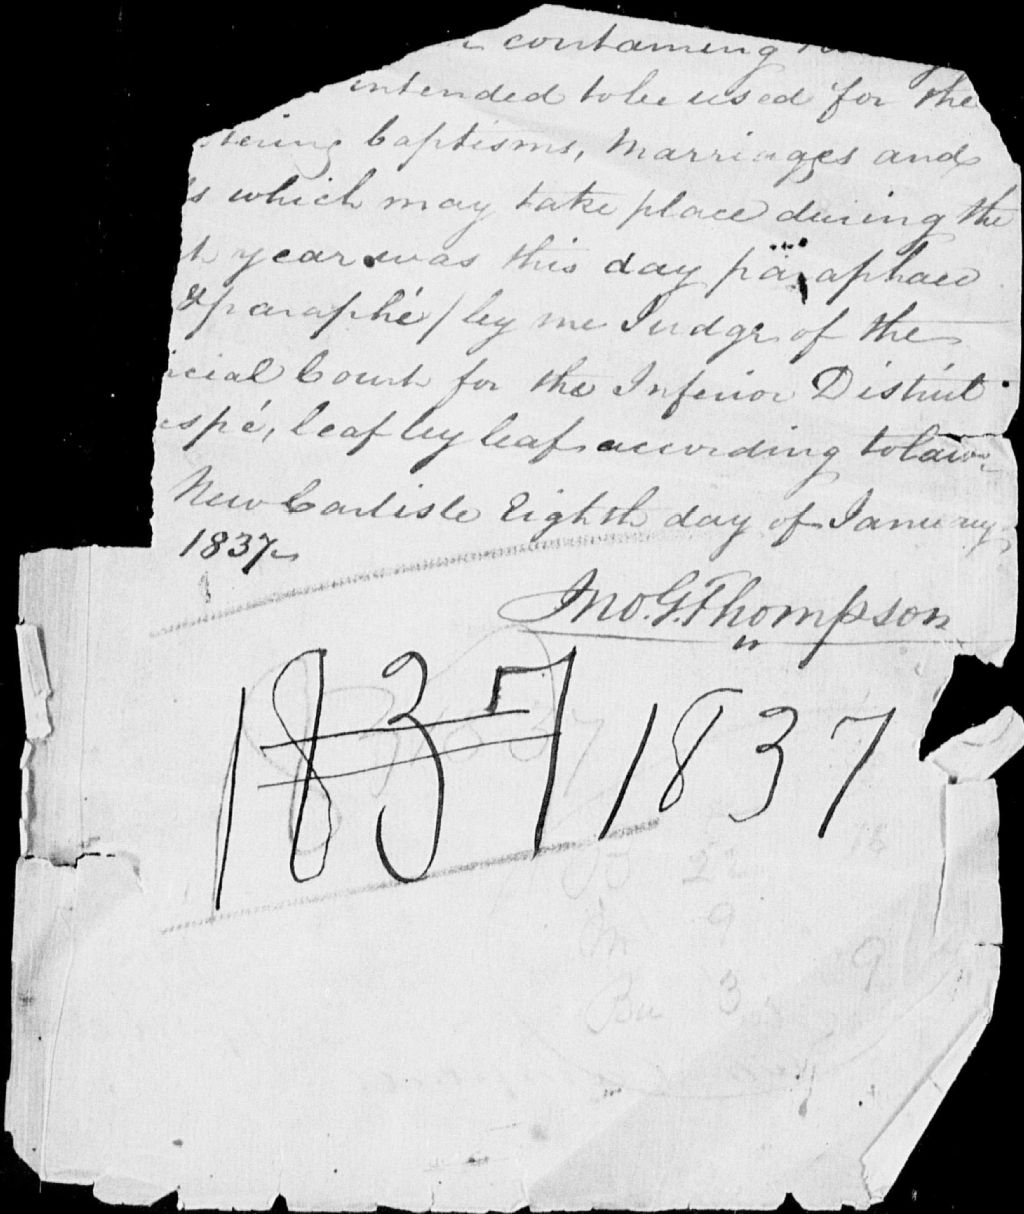 containing
intended to be used for the
tering baptisms, Marriages and
s which may take place during the
t year was this day paraphaed
paraphé / by me Judge of the
icial Court for the Inferior District
espé, leaf by leaf according to law
New Carlisle Eighth day of January
1837
Jno. G. Thompson
1837 1837
22
9
9
Bu 3